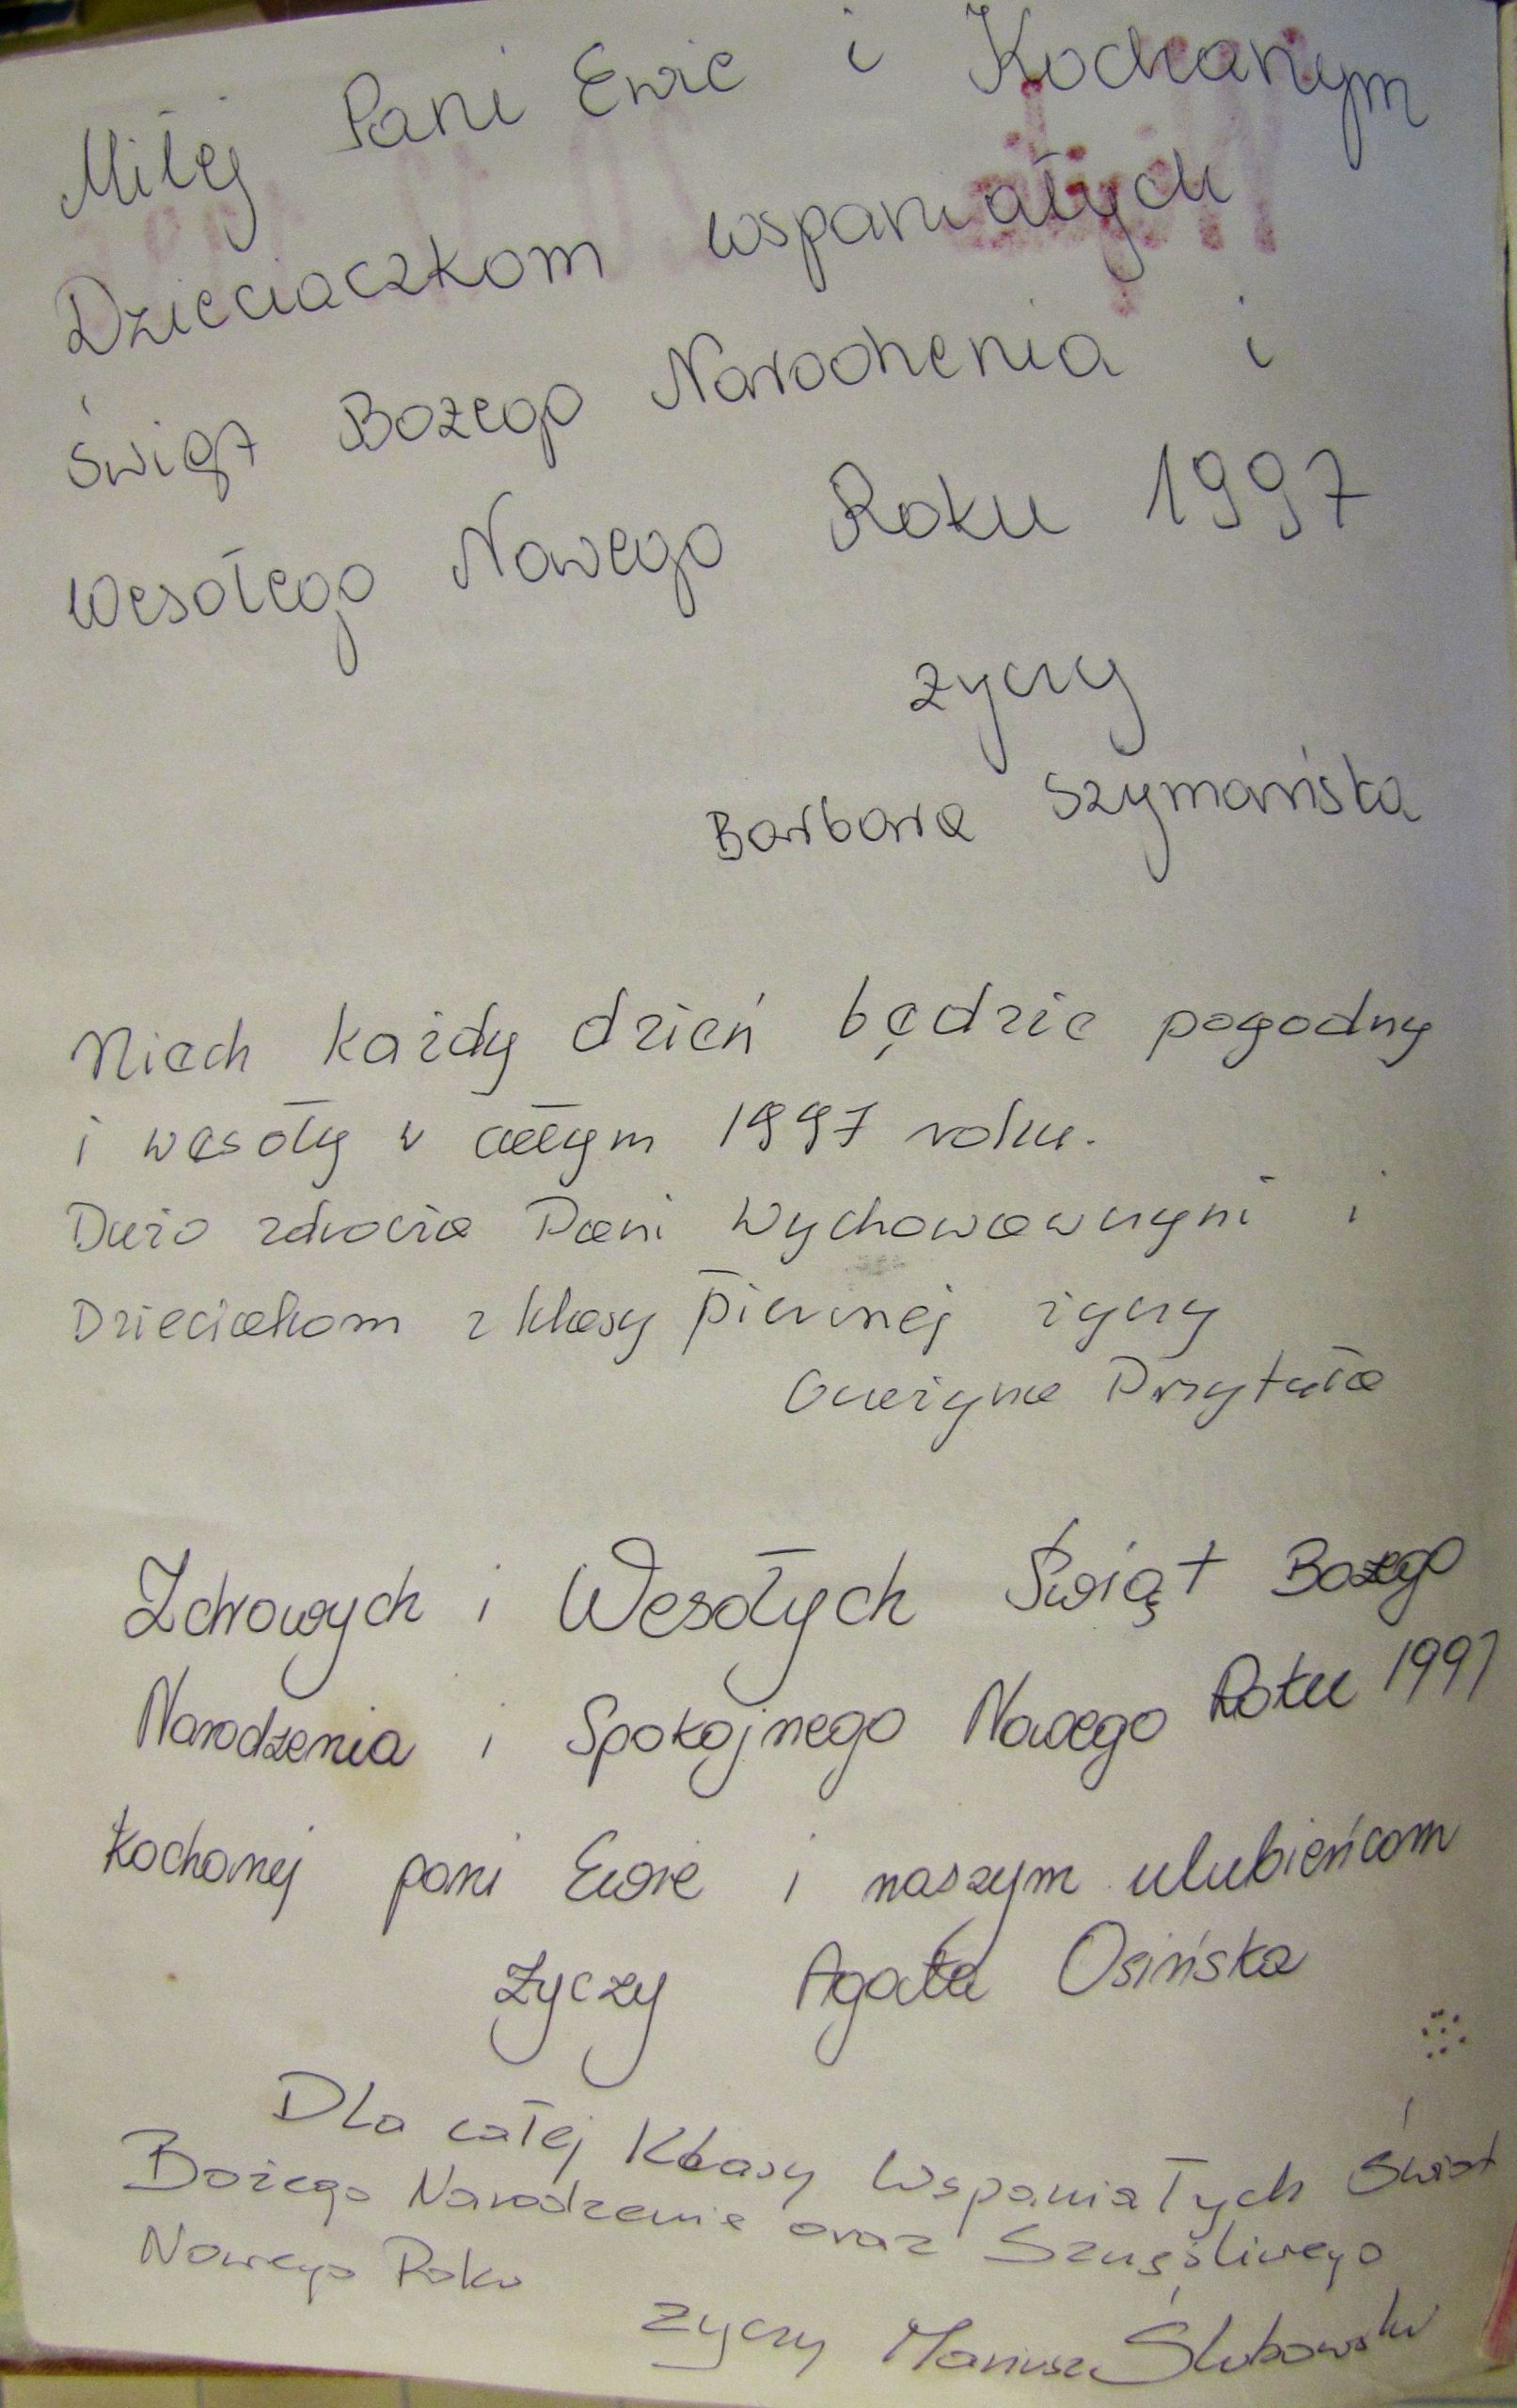 Miłej Pani Ewie i Kochanym
Dzieciaczkom wspaniałych
Świąt Bożego Narodzenia i
Wesołego Nowego Roku 1997
życzy
Barbara Szymańska
Niech każdy dzień będzie pogodny
i wesoły w całym 1997 roku.
Dużo zdrowia Pani Wychowawczyni i
Dzieciakom z klasy pierwszej życzy
Grażyna Przytuła
Zdrowych i Wesołych Świąt Bożego
Narodzenia i Spokojnego Nowego Roku 1997
kochanej pani Ewie i naszym ulubieńcom
życzy Agata Osińska
Dla całej Klasy Wspaniałych Świąt
Bożego Narodzenia oraz Szczęśliwego
Nowego Roku
życzy Mariusz